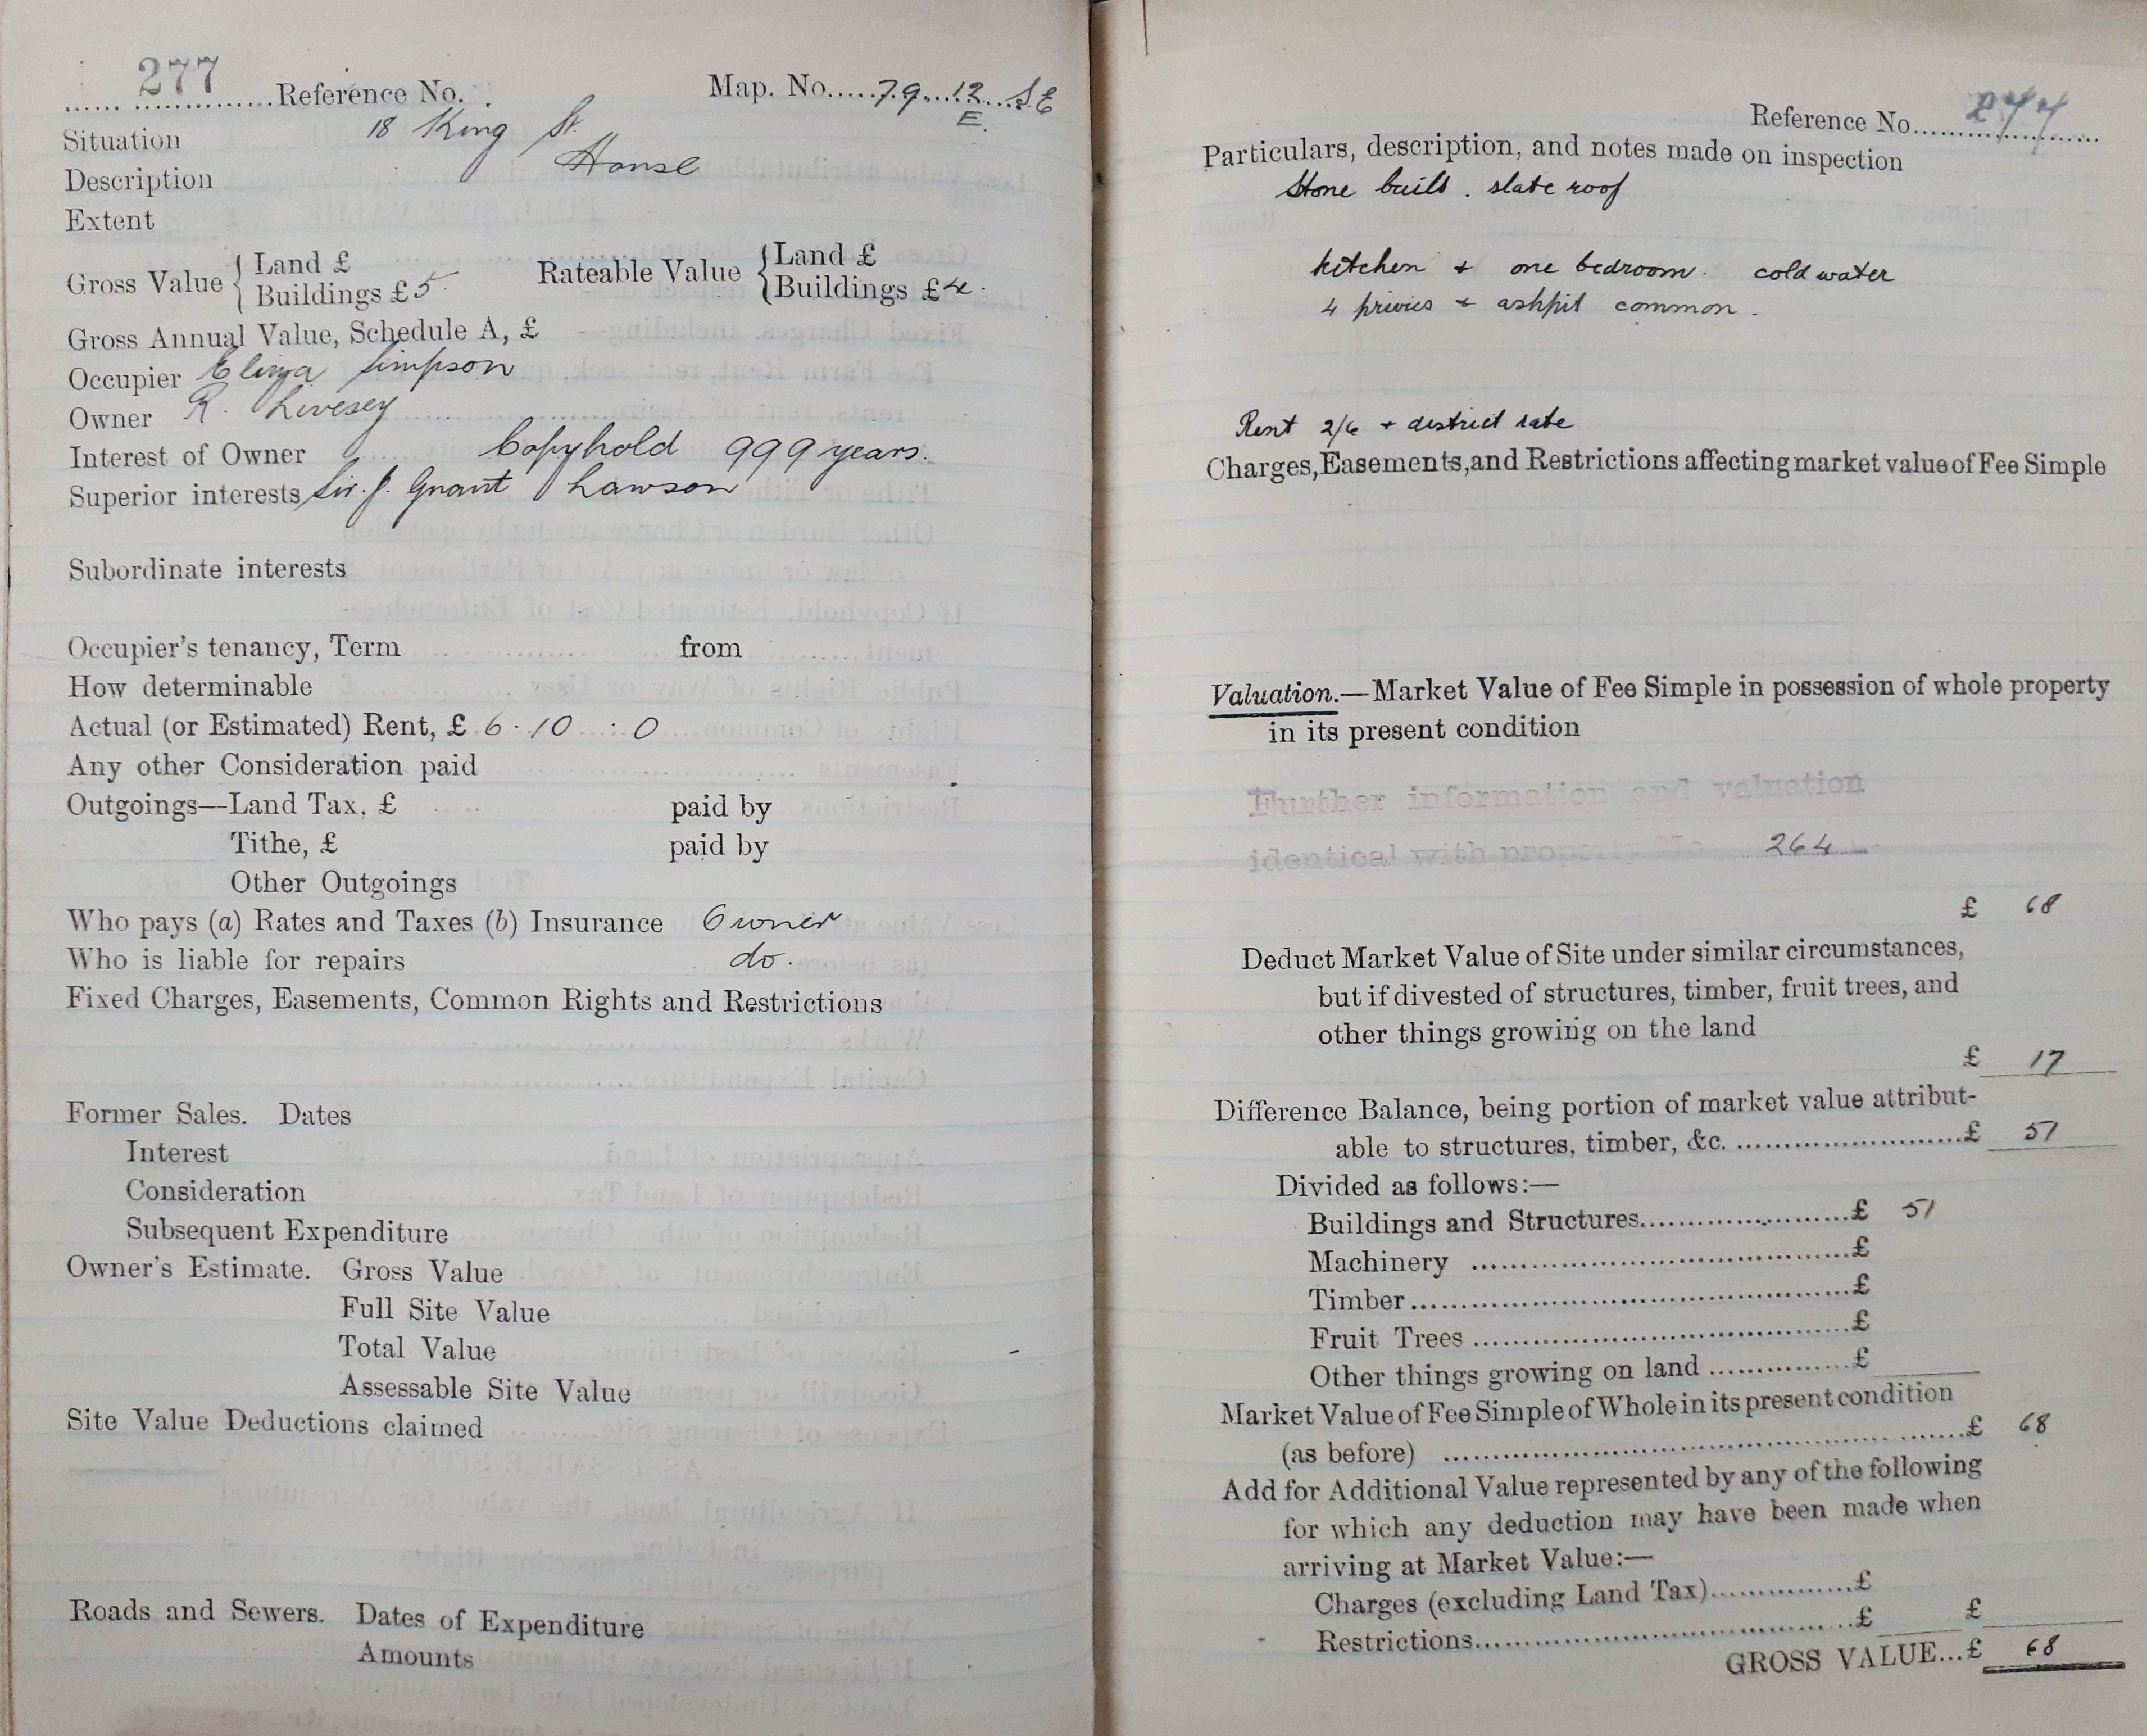 277 Reference No. Map. No. 79. 12. S.E
E.
Situation 18 King St.
Description House
Extent
Gross Value { Land £ Rateable Value { Land £
Buildings £5 Buildings £4.
Gross Annual Value, Schedule A, £
Occupier Eliza Simpson
Owner R. Livesey
Interest of Owner Copyhold 999 years.
Superior interests Sir. J. Grant Lawson
Subordinate interests
Occupier's tenancy, Term from
How determinable
Actual (or Estimated) Rent, £ 6 . 10 : 0
Any other Consideration paid
Outgoings—Land Tax, £ paid by
Tithe, £ paid by
Other Outgoings
Who pays (a) Rates and Taxes (b) Insurance Owner
Who is liable for repairs do.
Fixed Charges, Easements, Common Rights and Restrictions
Former Sales. Dates
Interest
Consideration
Subsequent Expenditure
Owner's Estimate. Gross Value
Full Site Value
Total Value
Assessable Site Value
Site Value Deductions claimed
Roads and Sewers. Dates of Expenditure
Amounts
Reference No. 277
Particulars, description, and notes made on inspection
Stone built. slate roof
kitchen + one bedroom. cold water
4 privies + ashpit common.
Rent 2/6 + district rate
Charges, Easements, and Restrictions affecting market value of Fee Simple
Valuation.—Market Value of Fee Simple in possession of whole property
in its present condition
Further information and valuation
identical with property No 264
£ 68
Deduct Market Value of Site under similar circumstances,
but if divested of structures, timber, fruit trees, and
other things growing on the land
£ 17
Difference Balance, being portion of market value attribut-
able to structures, timber, &c. £ 51
Divided as follows:—
Buildings and Structures £ 51
Machinery £
Timber £
Fruit Trees £
Other things growing on land £
Market Value of Fee Simple of Whole in its present condition
(as before) £ 68
Add for Additional Value represented by any of the following
for which any deduction may have been made when
arriving at Market Value:—
Charges (excluding Land Tax) £
Restrictions £ £
GROSS VALUE...£ 68